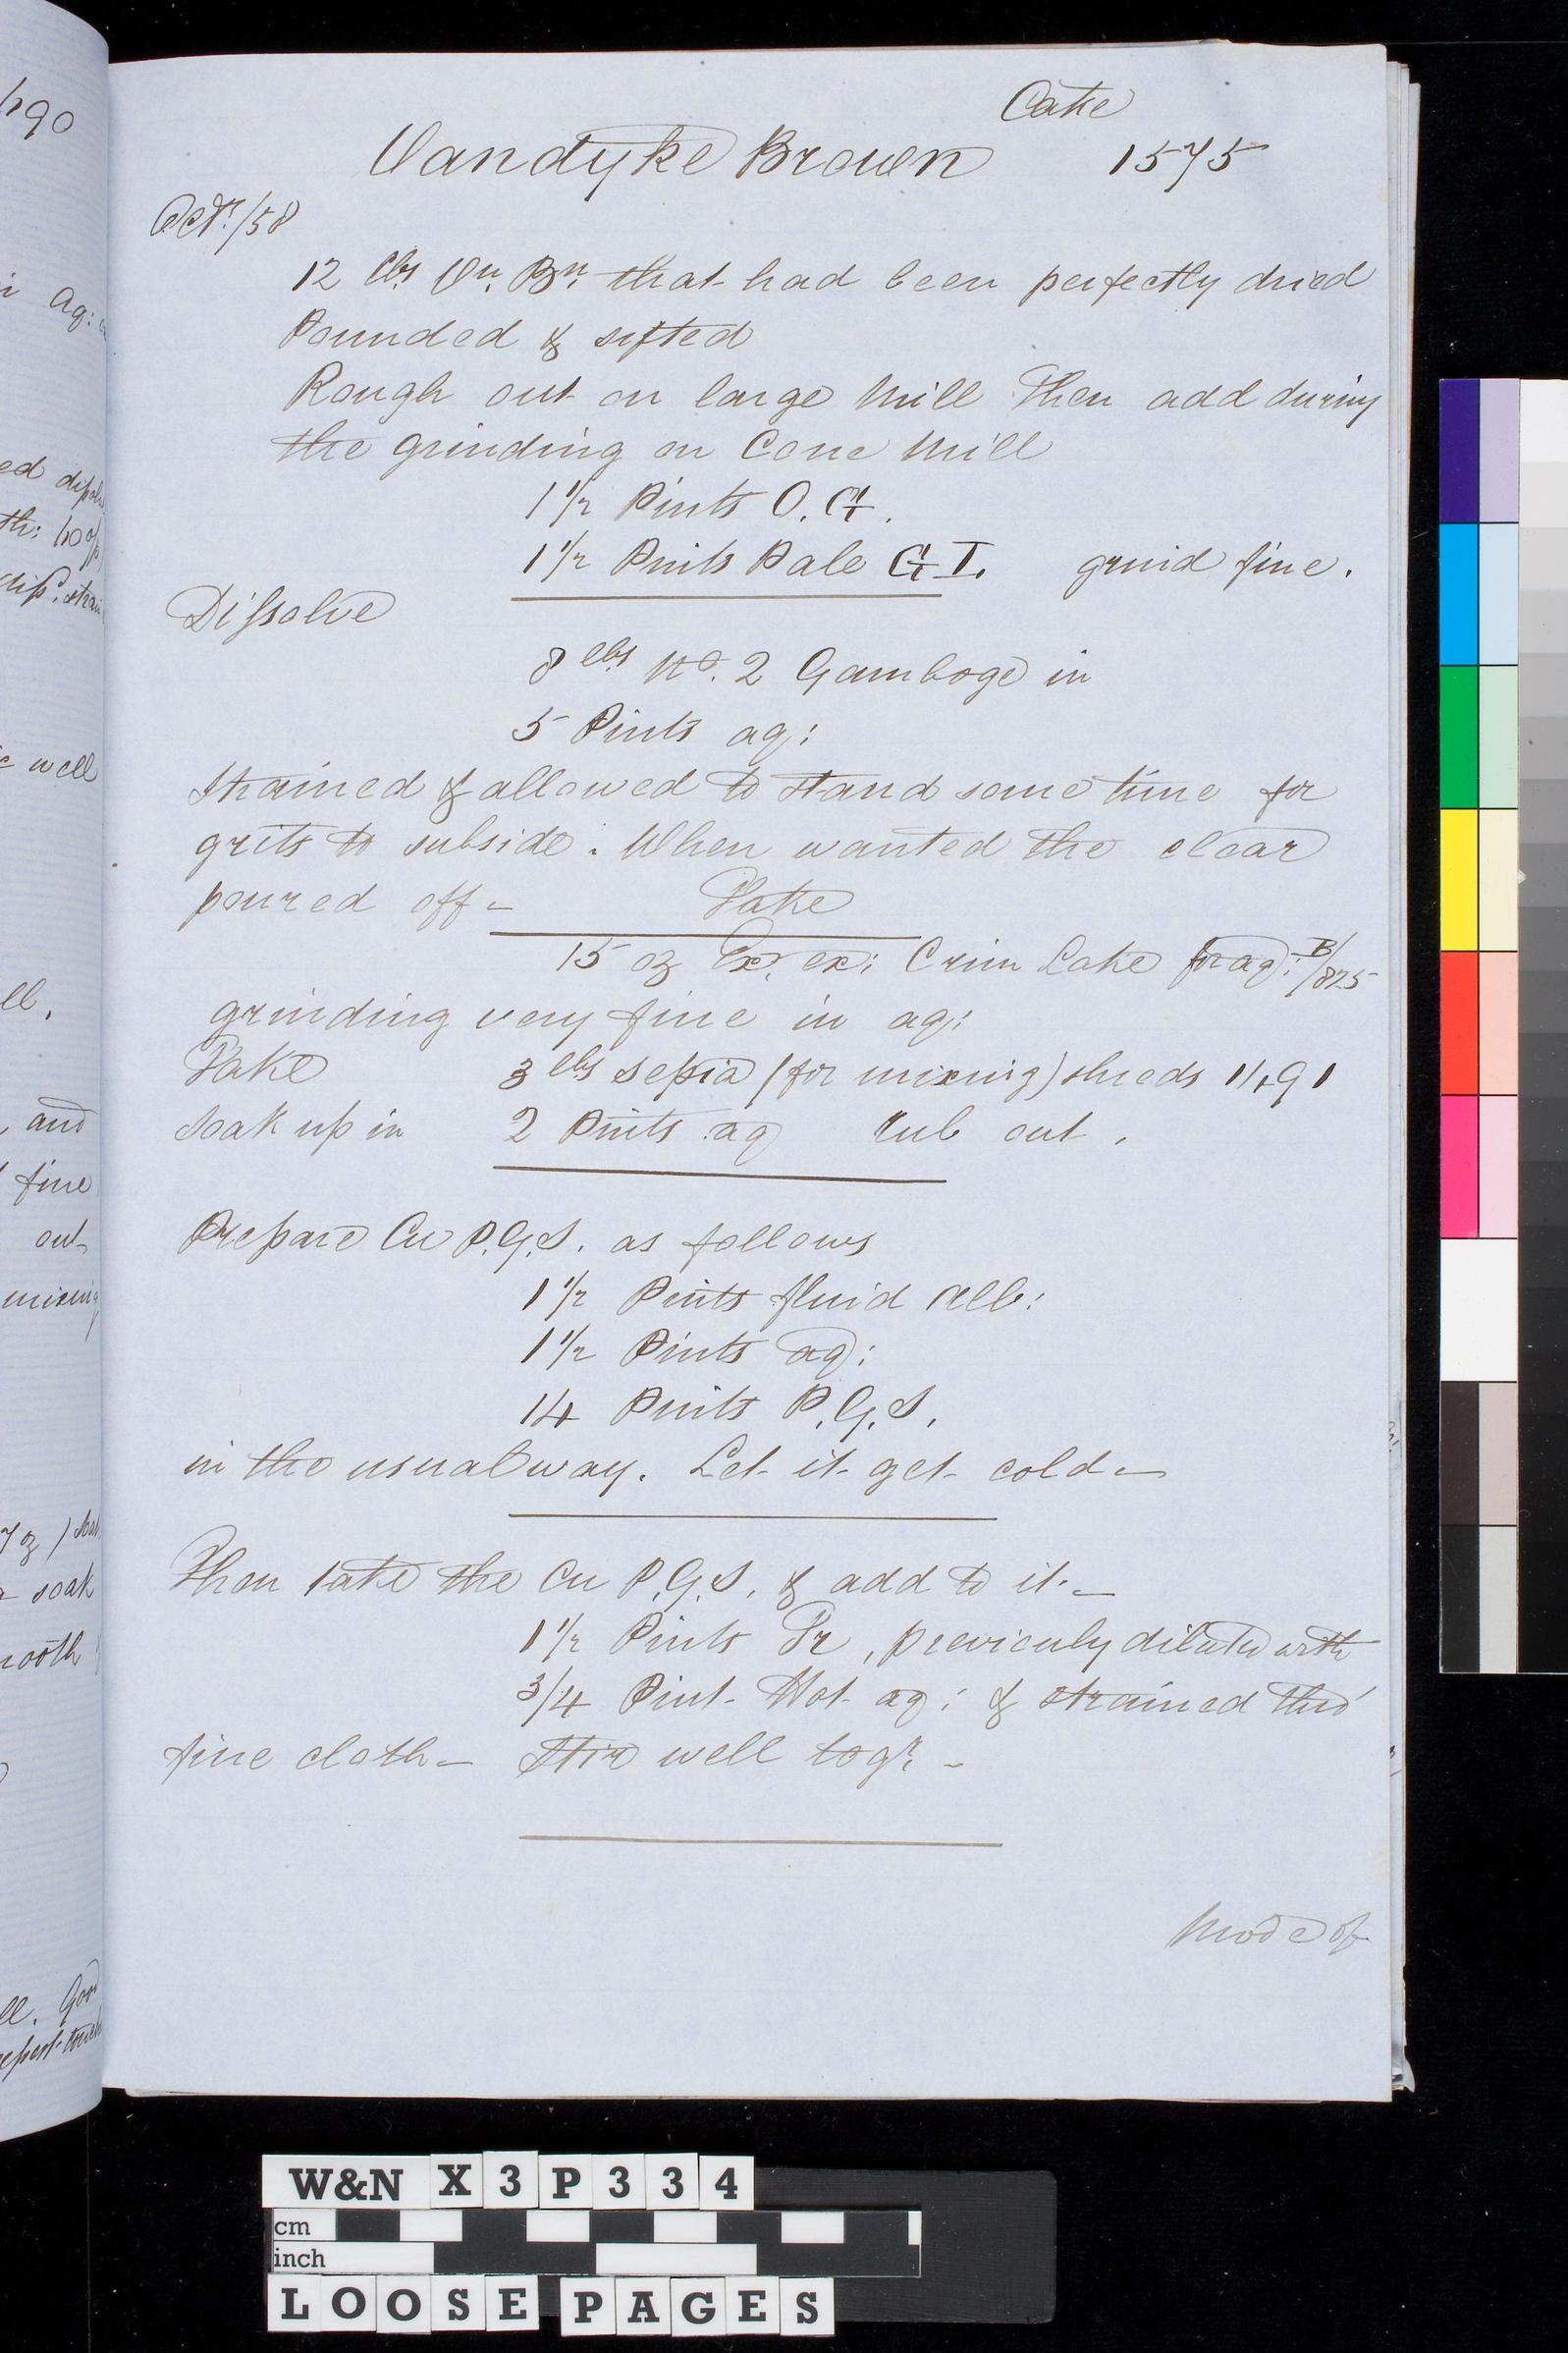 Cake
Vandyke Brown 1575
Octr/58
12 lbs Vn. Bn. that had been perfectly dried
Pounded & sifted
Rough out on large Mill Then add during
the grinding on Cone Mill
1 1/2 Pints O. G.
1 1/2 Pints Pale G I. grind fine.
Dissolve
8 lbs No. 2 Gamboge in
5 Pints aq:
strained & allowed to stand some time for
grits to subside. When wanted the clear
poured off –
Take
15 oz Ex. ex: Crim Lake frag: B/825
grinding very fine in aq:
Take 3 lbs sepia (for mixing) shreds 1491
soak up in 2 Pints aq rub out.
Prepare Cu P.G.S. as follows
1 1/2 Pints fluid alb:
1 1/2 Pints aq:
14 Pints P.G.S.
in the usual way. Let it get cold –
Then take the Cu P.G.S. & add to it –
1 1/2 Pints Tr, previously diluted with
3/4 Pint Hot aq: & strained thro'
fine cloth – Stir well togr. –
Mode of
490
aq:
well
ll.
and
fine
out
mixing
soak
ll. Good
W&N X3P334
cm
inch
LOOSE PAGES